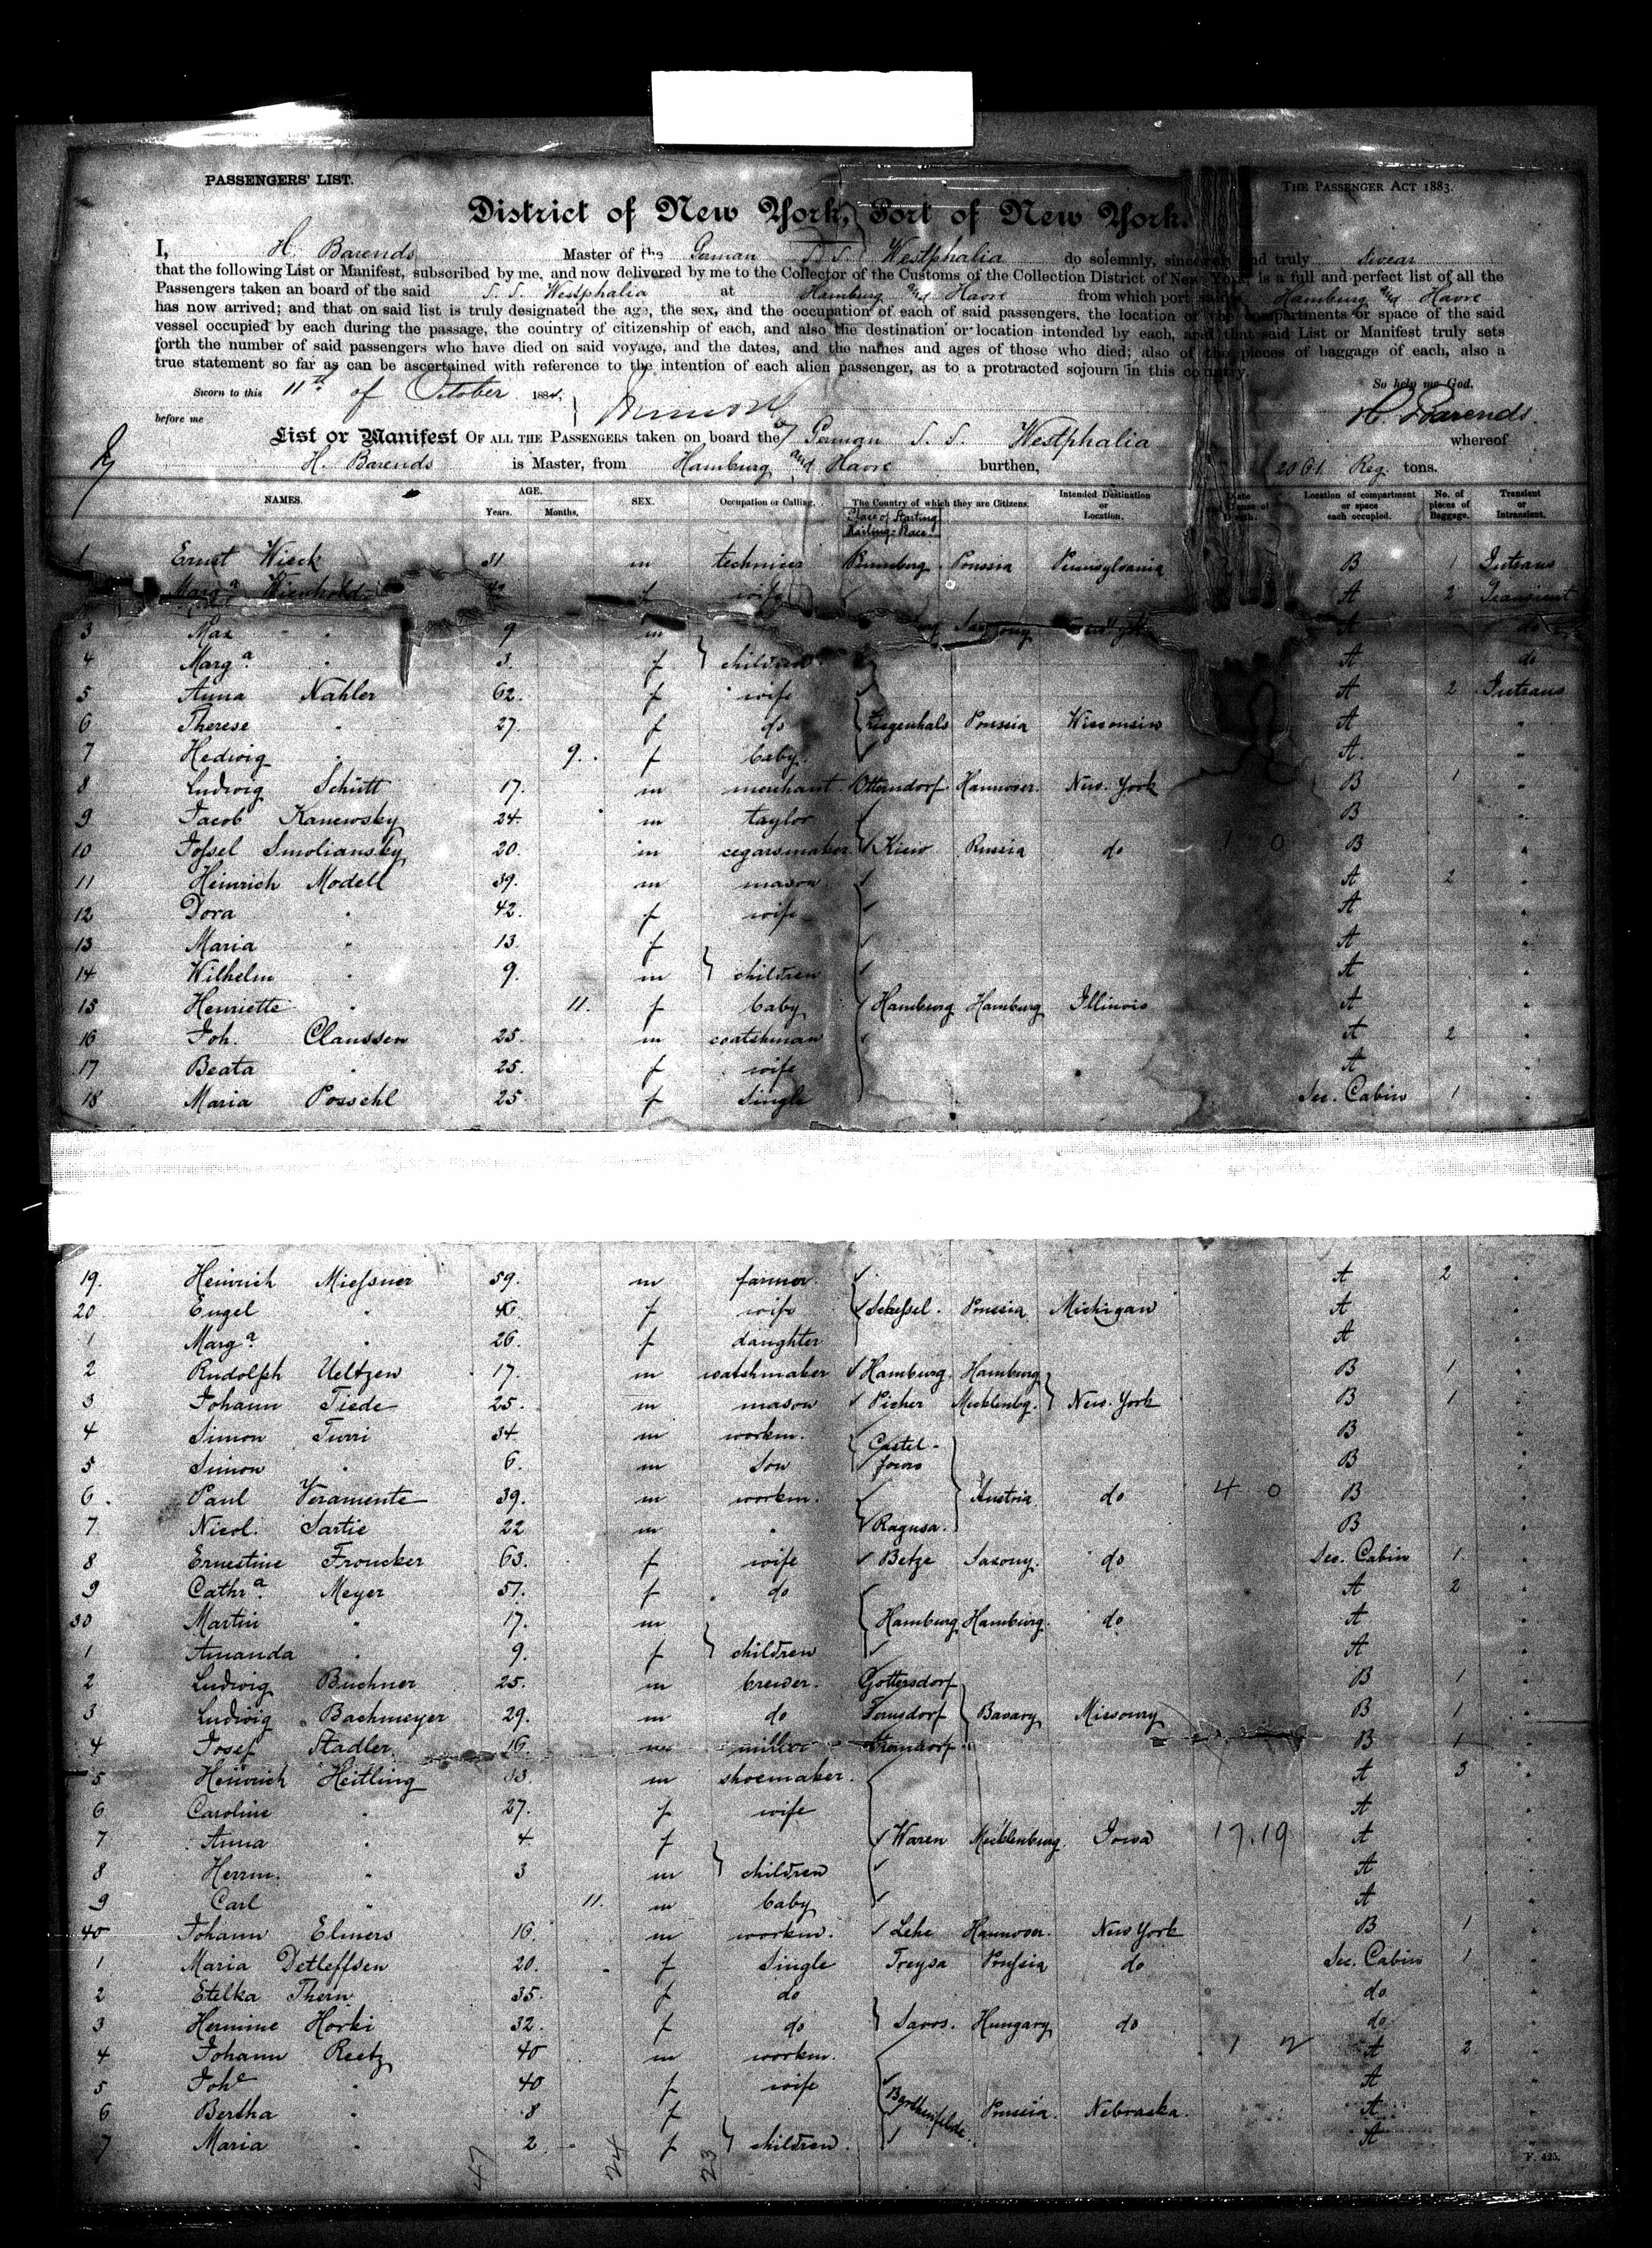 PASSENGERS' LIST.
THE PASSENGER ACT 1883.
District of New York, Port of New York.
I, H. Barends Master of the German S. S. Westphalia do solemnly, sincerely and truly swear
that the following List or Manifest, subscribed by me, and now delivered by me to the Collector of the Customs of the Collection District of New York, is a full and perfect list of all the
Passengers taken an board of the said S. S. Westphalia at Hamburg and Havre from which port said Hamburg and Havre
has now arrived; and that on said list is truly designated the age, the sex, and the occupation of each of said passengers, the location of the compartments or space of the said
vessel occupied by each during the passage, the country of citizenship of each, and also the destination or location intended by each, and that said List or Manifest truly sets
forth the number of said passengers who have died on said voyage, and the dates, and the names and ages of those who died; also of the pieces of baggage of each, also a
true statement so far as can be ascertained with reference to the intention of each alien passenger, as to a protracted sojourn in this country.
So help me God.
Sworn to this 11th of October 1884,
before me
H. Barends
List or Manifest OF ALL THE PASSENGERS taken on board the German S. S. Westphalia whereof
H. Barends is Master, from Hamburg and Havre burthen, Reg. tons.
NAMES. AGE. Years. Months. SEX. Occupation or Calling. The Country of which they are Citizens. Intended Destination or Location. Date Cause of Death. Location of compartment or space each occupied. No. of pieces of Baggage. Transient or Intransient.
Place of Starting
1 Ernst Wieck 31 m Prussia Pennsylvania B 1 Intrans
Marga Wienhold f wife A 2 Transient
3 Max " 9 m Saxony New York A do
4 Marga " 3. f children A do
5 Anna Nahler 62. f wife A 2 Intrans
6 Therese " 27. f do Ziegenhals Prussia Wisconsin A "
7 Hedwig " 9. f baby A. "
8 Ludwig Schütt 17. m merchant Otterndorf Hannover. New. York B 1 "
9 Jacob Kanewsky 24. m taylor B "
10 Jossel Smoliansky 20. m cegarsmaker Kiew Russia do 1 0 B "
11 Heinrich Modell 39. m mason A 2 "
12 Dora " 42. f wife A "
13 Maria " 13. f A "
14 Wilhelm " 9. m children A "
15 Henriette " 11. f baby Hamburg Hamburg Illinois A "
16 Joh. Claussen 25. m coatshman A 2 "
17 Beata " 25. f wife A "
18 Maria Possehl 25. f Single Sec. Cabin 1 "
19. Heinrich Miessner 59. m farmer. A 2 "
20 Engel " f wife Schessel. Prussia Michigan A "
1 Marga " 26. f daughter A "
2 Rudolph Ueltzen 17. m watshmaker Hamburg. Hamburg B 1 "
3 Johann Tiede 25. m mason Picher Mecklenbg. New. York B 1 "
4 Simon Turri 34. m workm. Castel- B "
5 Simon " 6. m Son B "
6. Paul Veramente 39. m workm. Austria do 4 0 B "
7 Nicol. Sartie 22 m " Ragusa. B "
8 Ernestine Froucker 63. f wife Betze Saxony. do Sec. Cabin 1. "
9 Cathra Meyer 57. f do A 2 "
30 Martin " 17. m Hamburg Hamburg. do A "
1 Amanda " 9. f children A "
2 Ludwig Buchner 25. m brewer. Gottersdorf B 1 "
3 Ludwig Bachmeyer 29. m do Bavary Missoury B 1 "
4 Josef Stadler 16. m miller B 1 "
5 Heinrich Heitling 33. m shoemaker. A 3 "
6 Caroline " 27. f wife A "
7 Anna " 4. f Waren Mecklenburg. Iowa 17.19 A "
8 Herrm. " 3 m children A "
9 Carl " 11. m baby A "
40 Johann Elmers 16. m workm. Lehe Hannover. New York B 1 "
1 Maria Detleffsen 20. f Single Treysa Prussia do Sec. Cabin 1 "
2 Etelka Thern 35. f do do "
3 Hermine Horki 32. f do Saros. Hungary do do "
4 Johann Reetz 40 m workm. 1 2 A 2 "
5 Johe " 40 f wife A "
6 Bertha " 8 f Prussia. Nebraska. A "
7 Maria " 2. f children. A "
47 24 23
F. 425.